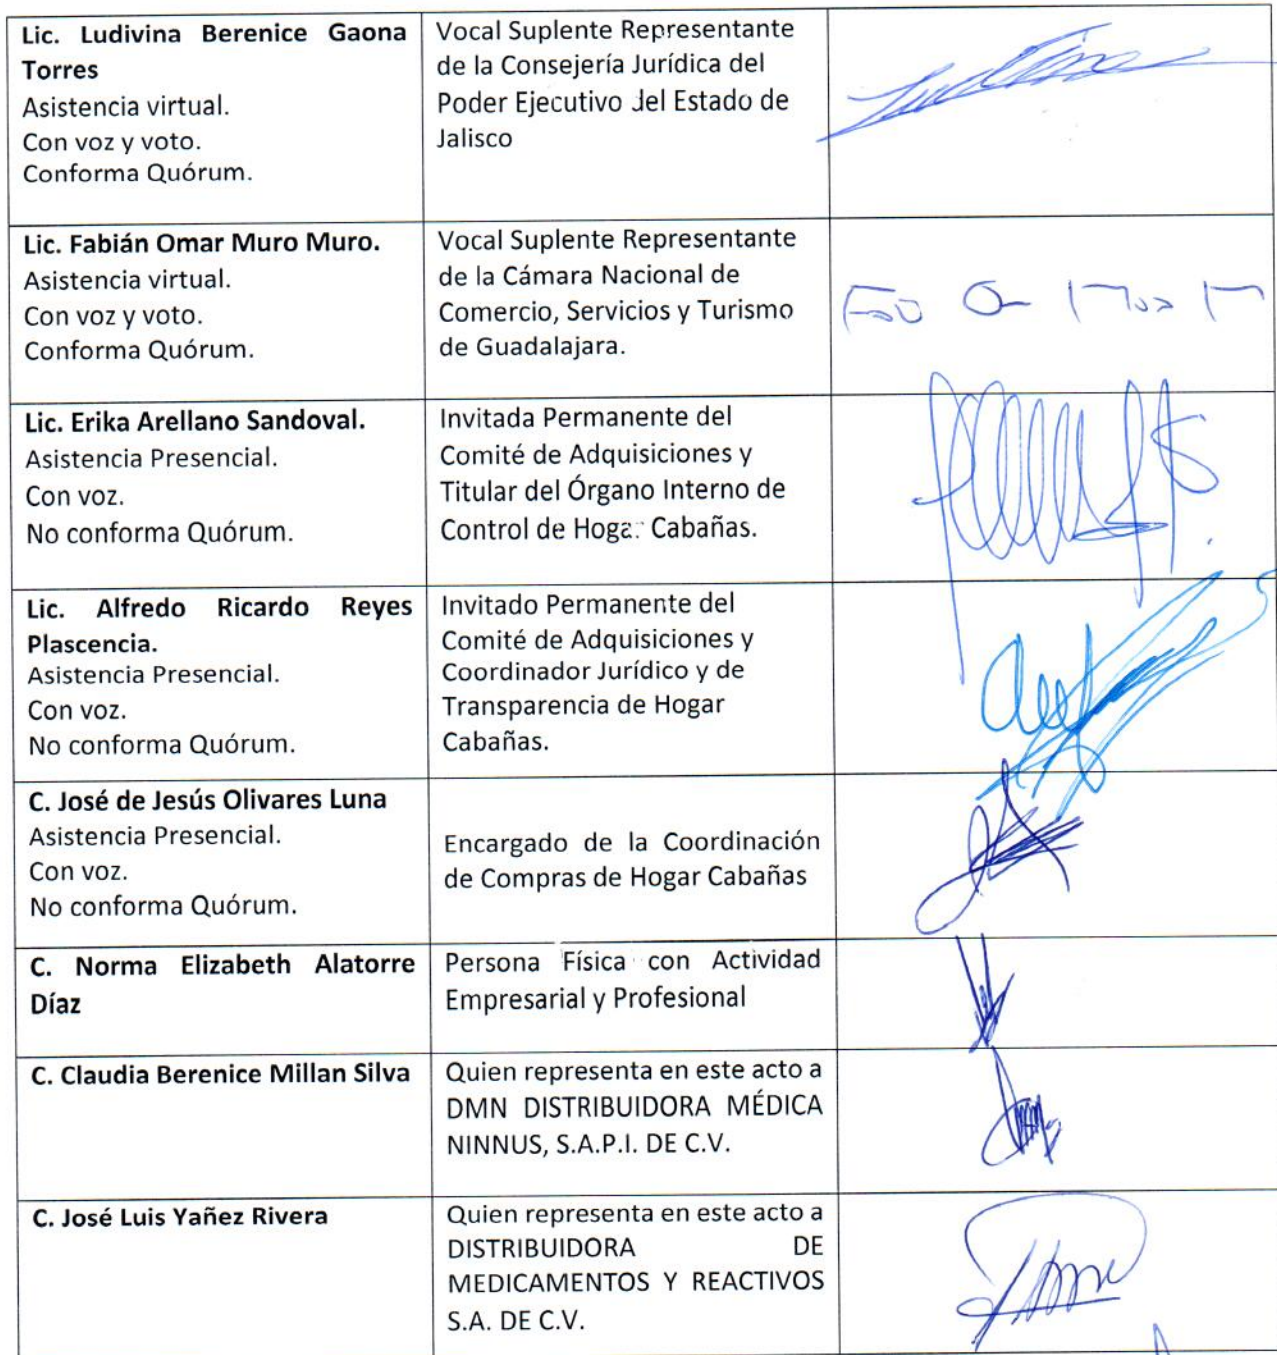 Lic. Ludivina Berenice Gaona
Torres
Asistencia virtual.
Con voz y voto.
Conforma Quórum.
Vocal Suplente Representante
de la Consejería Jurídica del
Poder Ejecutivo del Estado de
Jalisco
Lic. Fabián Omar Muro Muro.
Asistencia virtual.
Con voz y voto.
Conforma Quórum.
Vocal Suplente Representante
de la Cámara Nacional de
Comercio, Servicios y Turismo
de Guadalajara.
Lic. Erika Arellano Sandoval.
Asistencia Presencial.
Con voz.
No conforma Quórum.
Invitada Permanente del
Comité de Adquisiciones y
Titular del Órgano Interno de
Control de Hogar Cabañas.
Lic. Alfredo Ricardo Reyes
Plascencia.
Asistencia Presencial.
Con voz.
No conforma Quórum.
Invitado Permanente del
Comité de Adquisiciones y
Coordinador Jurídico y de
Transparencia de Hogar
Cabañas.
C. José de Jesús Olivares Luna
Asistencia Presencial.
Con voz.
No conforma Quórum.
Encargado de la Coordinación
de Compras de Hogar Cabañas
C. Norma Elizabeth Alatorre
Díaz
Persona Física con Actividad
Empresarial y Profesional
C. Claudia Berenice Millan Silva
Quien representa en este acto a
DMN DISTRIBUIDORA MÉDICA
NINNUS, S.A.P.I. DE C.V.
C. José Luis Yañez Rivera
Quien representa en este acto a
DISTRIBUIDORA DE
MEDICAMENTOS Y REACTIVOS
S.A. DE C.V.